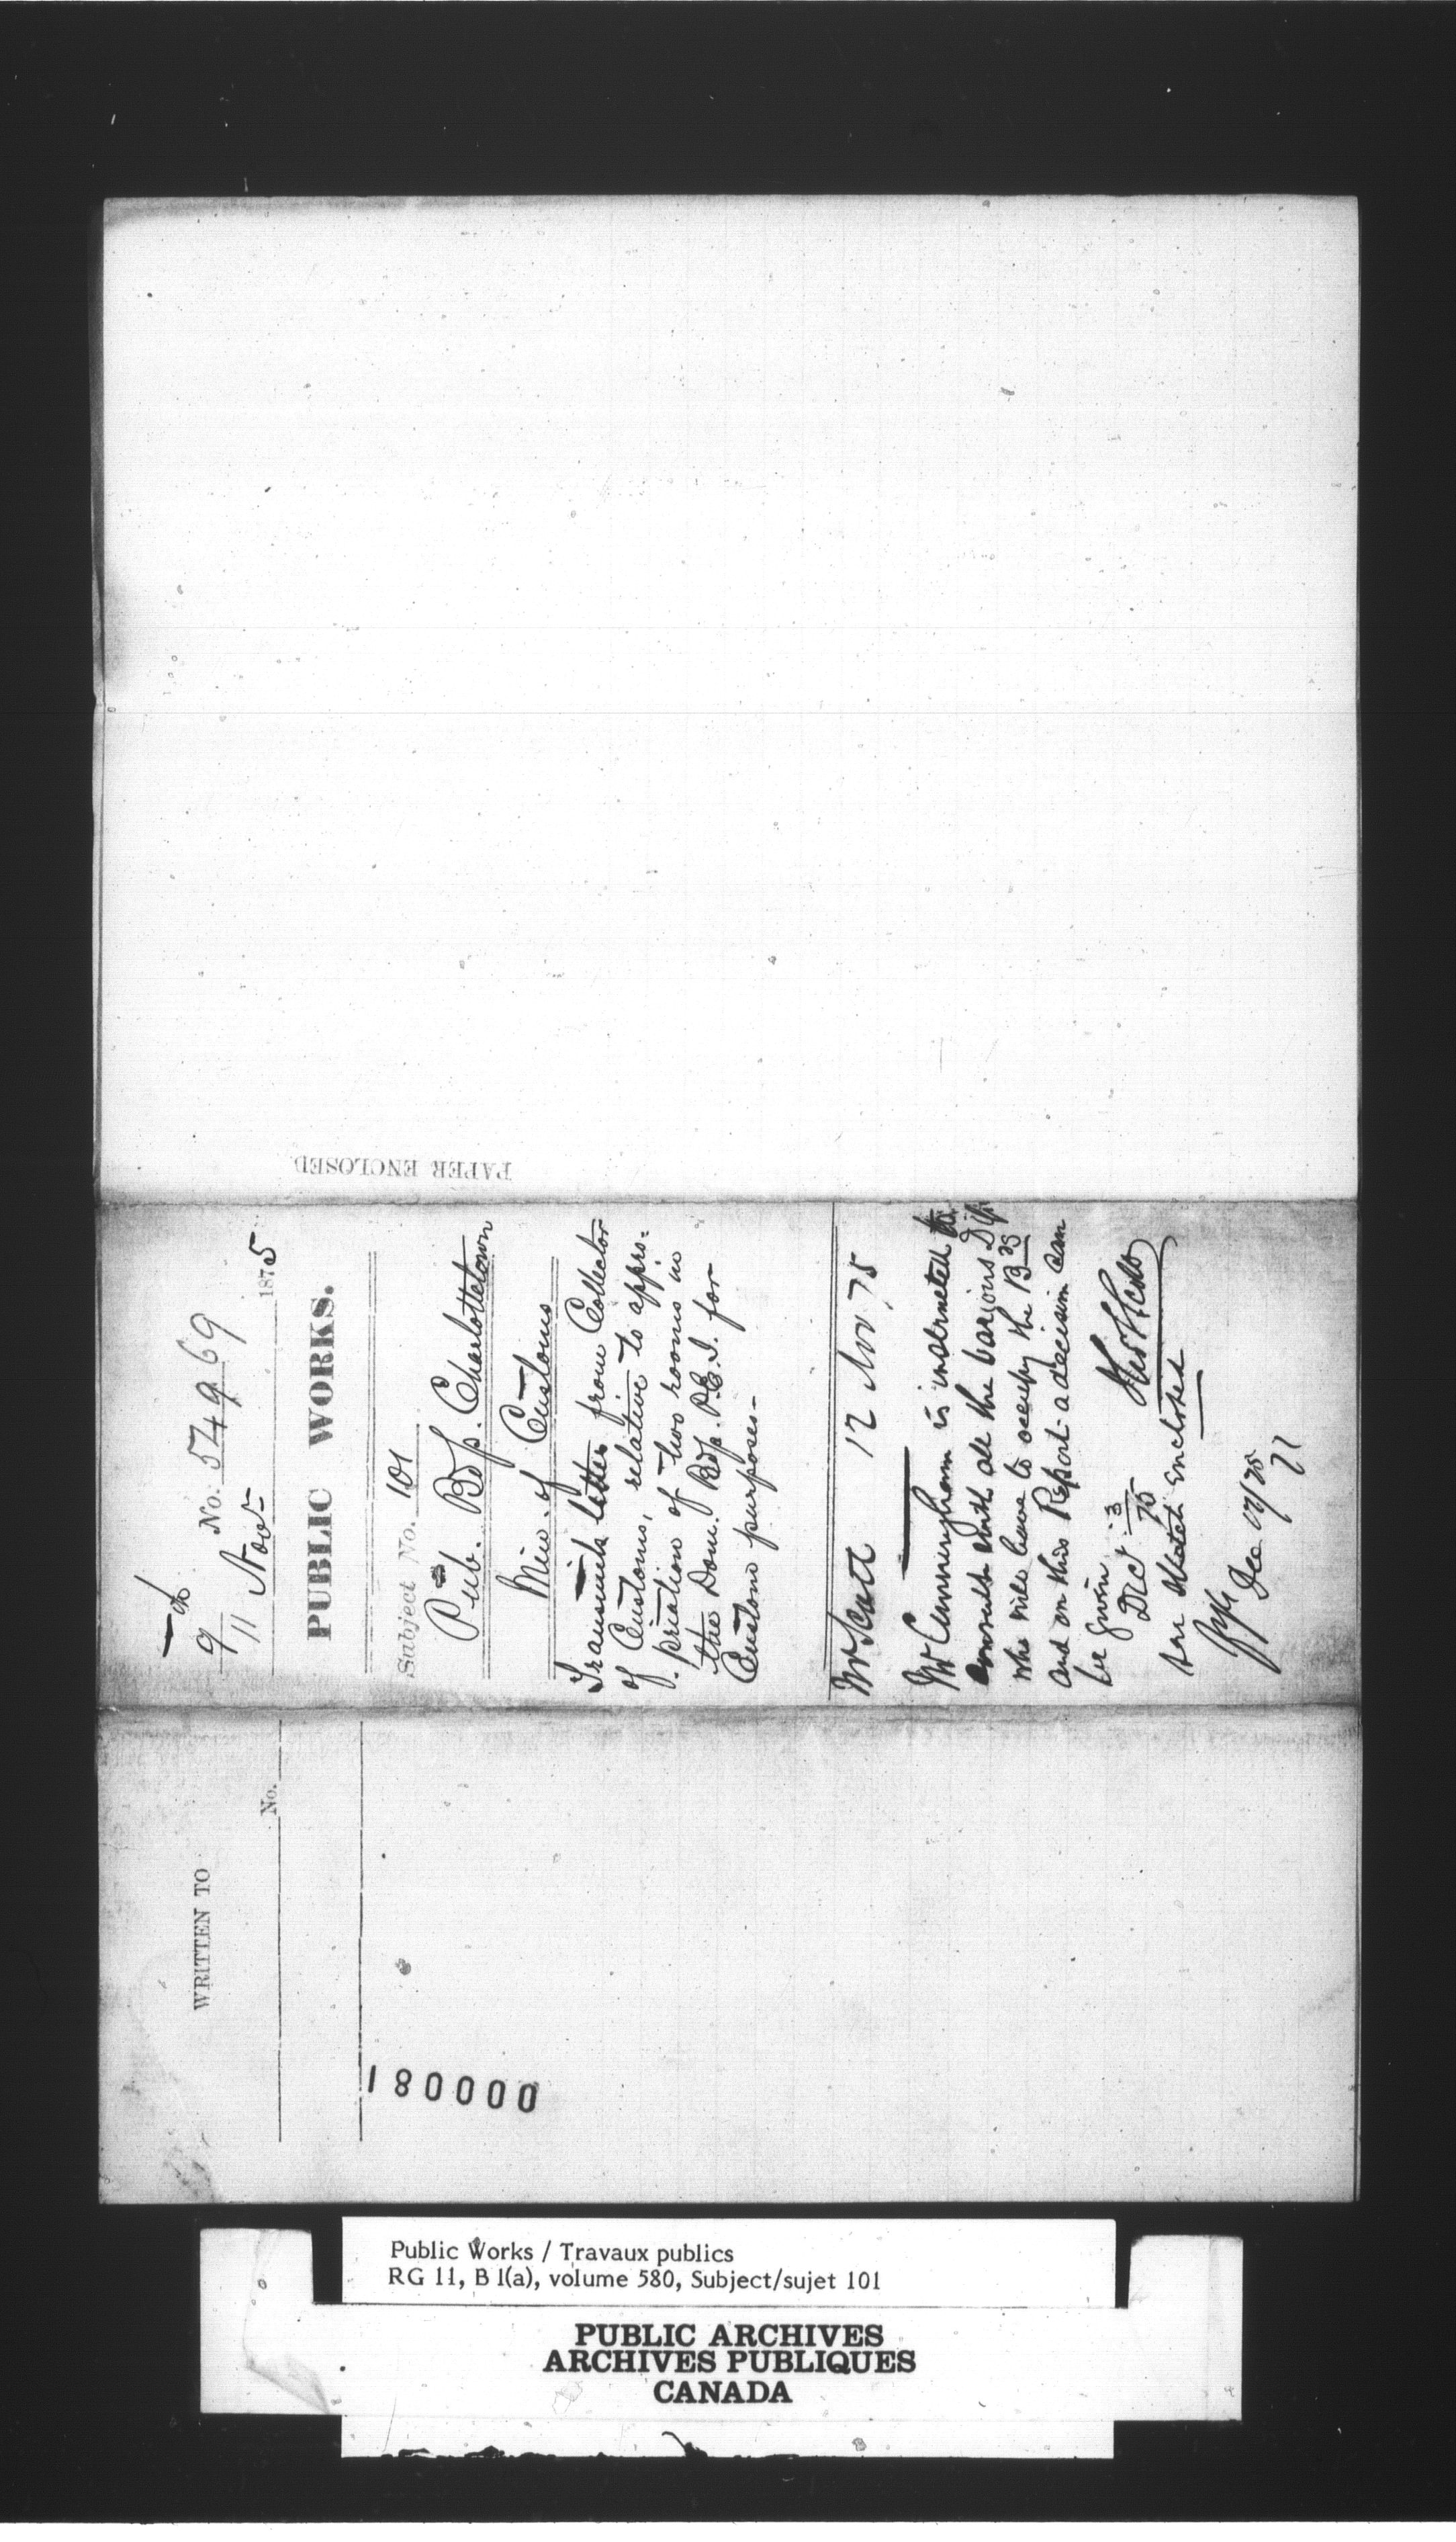 9
11 Nov- 1875
No. 54969
PUBLIC WORKS.
Subject No. 101
Pub. Bdgs. Charlottetown
Min. of Customs
Transmits letter from Collector
of Customs, relative to appro-
priation of two rooms in
the Dom. Bdg. P.E.I. for
Custom purposes-
Mr Scott 12 Nov 75
Mr Cunningham is instructed to
consult with all the various
who will have to occupy the Bgs
and on this Report a decision can
be given
Thos S Scott
Dec 3
75
See Sketch Enclosed
Dec 75
PAPER ENCLOSED
WRITTEN TO
No.
180000
Public Works / Travaux publics
RG 11, B 1(a), volume 580, Subject/sujet 101
PUBLIC ARCHIVES
ARCHIVES PUBLIQUES
CANADA